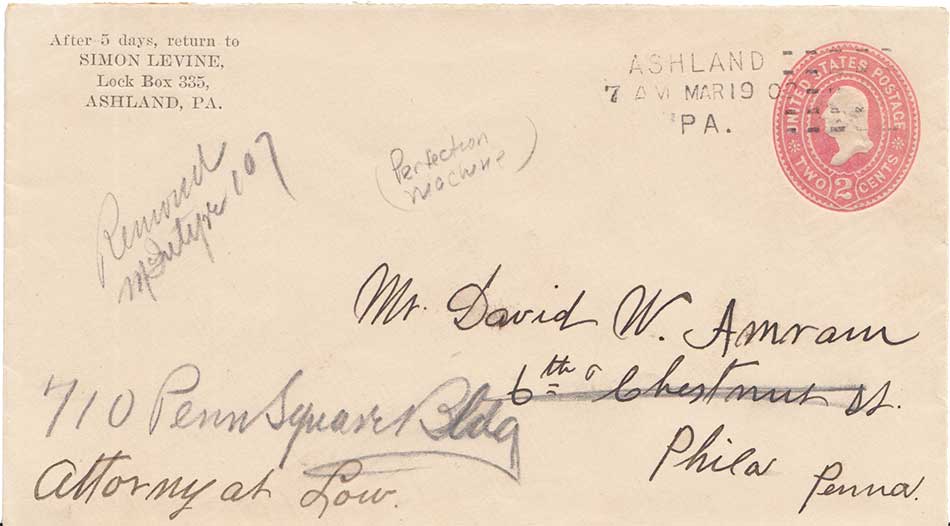 After 5 days, return to
SIMON LEVINE,
Lock Box 335,
ASHLAND, PA.
ASHLAND
7 AM MAR 19
PA.
UNITED STATES POSTAGE
TWO 2 CENTS
(Perfection
Machine)
McIntyre 107
Mr. David W. Amram
6th & Chestnut St.
Phila Penna.
710 Penn Square Bldg
Attorny at Low.